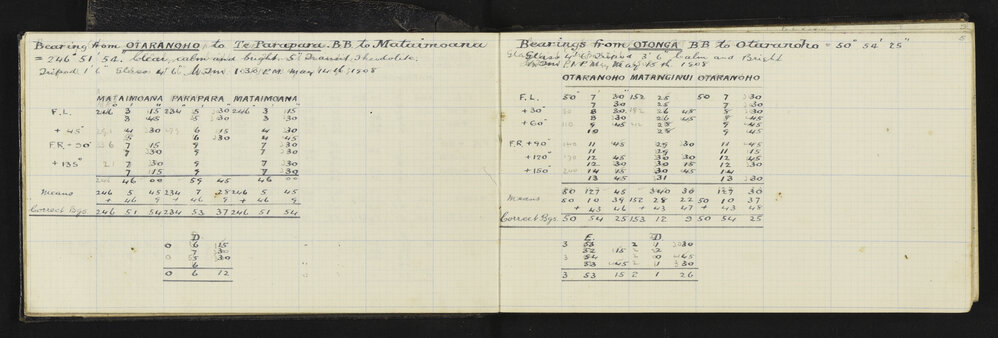 Bearing from "OTARANOHO" to Te Parapara. B.B to Mataimoana
= 246° 51' 54". Clear, calm and bright. 5" Transit Theodolite.
Tripod 1' 6" Glass 4' 6" 1.30 P.M. May 14th 1908
MATAIMOANA PARAPARA MATAIMOANA
F.L. 246° 3' 15" 234° 5' 30" 246° 3' 15"
3 45 5 30 3 30
+ 45° 4 30 6 15 4 30
5 6 30 4 45
F.R + 90° 7 15 9 7 30
7 30 9 7 30
+ 135° 7 30 9 7 30
7 15 9 7 30
46 00 59 45 46 00
Means 246 5 45 234 7 28 246 5 45
+ 46 9 + 46 9 + 46 9
Correct Bgs. 246 51 54 234 53 37 246 51 54
D
0 6 15
7 30
0 5 30
6
0 6 12
5
Bearings from "OTONGA" B.B to Otaranoho = 50° 54' 25"
Glass 4' 6" Tripod 3' 6" Calm and Bright
P.M. May 15th 1908
OTARANOHO MATANGINUI OTARANOHO
F.L. 50° 7' 30" 152 25 50 7 30
7 30 25 7 30
+ 30° 8 30 26 45 8 30
8 30 26 45 9 45
+ 60° 9 45 28 9 45
10 28 9 45
F.R + 90° 11 45 29 30 11 45
11 29 11 15
+ 120° 12 45 30 30 12 45
12 30 30 15 12 30
+ 150° 14 30 45 14
13 45 31 13 30
50 127 45 340 30 127 30
Means 50 10 39 152 28 22 50 10 37
+ 43 46 + 43 47 + 43 48
Correct Bgs. 50 54 25 153 12 9 50 54 25
E. D.
3 53 2 1 30
52 15 2 2
3 54 2 0 45
53 45 2 1 30
3 53 15 2 1 26